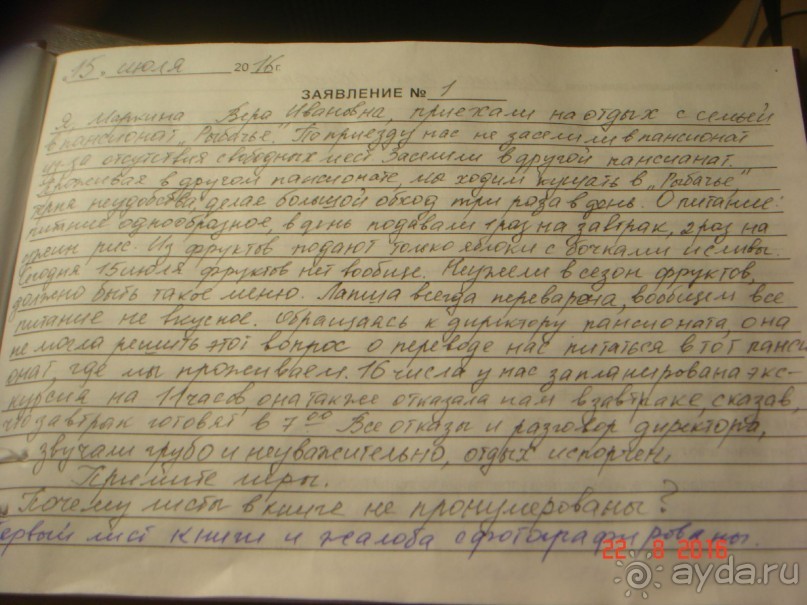 15. июля 2016 г.
ЗАЯВЛЕНИЕ № 1
Я, Маркина Вера Ивановна, приехали на отдых с семьей
в пансионат „Рыбачье". По приезду нас не заселили в пансионат
из-за отсутствия свободных мест. Заселили в другой пансианат.
Проживая в другом пансионате, мы ходим кушать в „Рыбачье",
терпя неудобства, делае большой обход три роза в день. О питание:
питание однообразное, в день подавали 1 раз на завтрак, 2 раз на
ужин рис. Из фруктов подают только яблоки с бочками и сливы.
Сегодня 15 июля фруктов нет вообще. Неужели в сезон фруктов,
должно быть такое меню. Лапша всегда переварена, вообщем все
питание не вкусное. Обращаясь к директору пансионата, она
не могла решить этот вопрос о переводе нас питаться в тот панси
онат, где мы проживаем. 16 числа у нас запланирована экс-
курсия на 11 часов, она также отказала нам в завтраке, сказав,
что завтрак готовят в 7 00 Все отказы и разговор директора,
звучали грубо и неуважительно, отдых испорчен.
Примите меры.
Почему листы в книге не пронумерованы?
Первый лист книги и жалоба сфотографированы.
22 8 2016
ayda.ru